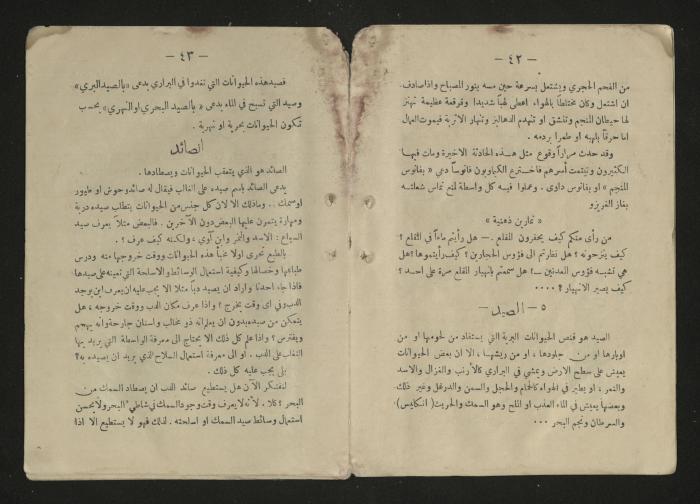 — ٤٢ —
من الفحم الحجري ويشتعل بسرعة حين مسه بنور المصباح واذا صادف
ان اشتعل وكان مختلطاً بالهواء اعطى لهباً شديداً وقرقعة عظيمة تهتز
لها حيطان المنجم وتنشق او تنهدم الدهاليز وتنهار الاتربة فيموت العمال
اما حرقاً بلهبه او طمراً بردمه .
وقد حدث مراراً وقوع مثل هذه الحادثة الاخيرة ومات فيها
الكثيرون وتيتمت أسرهم فاخترع الكياويون فانوساً دعي « بفانوس
المنجم » او بفانوس داوي . وعملوا فيه كل واسطة لمنع تماس شعلته
بغاز الغريزو
« تمارين ذهنية »
من رأى منكم كيف يحفرون القلع — هل رأيتم ماءاً في القلع ؟
كيف ينزحونه ؟ هل نظرتم الى فؤوس الحجارين ؟ كيف رأيتموها ؟ هل
هي تشبه فؤوس المعدنين —؟ هل سمعتم بانهيار القلع مرة على احد ؟
كيف يصير الانهيار ؟ ....
٥ — الصيد —
الصيد هو قنص الحيوانات البرية التي يستفاد من لحومها او من
اوبارها او من جلودها ، او من ريشها ، الا ان بعض الحيوانات
يعيش على سطح الارض ويمشي في البراري كالأرنب والغزال والاسد
والنمر ، او يطير في الهواء كالحمام والحجل والسمن والدرغل وغير ذلك
وبعضها يعيش في الماء العذب او المالح وهو السمك والحريت ( انكليس )
والسرطان ونجم البحر ...
— ٤٣ —
قصيد هذه الحيوانات التي تغدوا في البراري يدعى « بالصيد البري »
وصيد التي تسبح في الماء يدعى « بالصيد البحري او النهري » بحسب
تتكون الحيوانات بحرية او نهرية .
الصائد
الصائد هو الذي يتعقب الحيوانات ويصطادها .
يدعى الصائد باسم صيده على الغالب فيقال له صائد وحوش او طيور
او سمك .. وما ذلك الا لان كل جنس من الحيوانات يتطلب صيده دربة
ومهارة يتمرن عليها البعض دون الآخرين . فالبعض مثلاً يعرف صيد
السباع : الاسد والنمر وابن آوي ، ولكنه كيف عرف ؟ .
بالطبع تحرى اولا مخبأ هذه الحيوانات ووقت خروجها منه ودرس
طباعها وخصالها وكيفية استعمال الوسائط والاسلحة التي تعينه على صيدها
فاذا جاء احدنا واراد ان يصيد دباً مثلا الا يجب عليه ان يعرف اين يوجد
الدب وفي اي وقت يخرج ؟ واذا عرف مكان الدب ووقت خروجه ، هل
يتمكن من صيده بدون ان يعلم انه ذو مخالب واسنان جارحة وانه يهجم
ويفترس ؟ واذا علم كل ذلك الا يحتاج الى معرفة الواسطة التي يريد بها
التغلب على الدب . او الى معرفة استعمال السلاح الذي يريد ان يصيده به ؟
بلى يجب عليه كل ذلك .
لنفتكر الآن هل يستطيع صائد الدب ان يصطاد السمك من
البحر ؟ كلا . لأنه لا يعرف وقت وجود السمك في شاطئ البحر ولا يحسن
استعمال وسائط صيد السمك او اسلحته . لذلك فهو لا يستطيع الا اذا